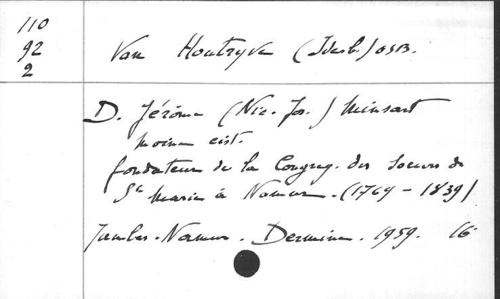 110
92
2
Van Houtryve (Idesb.) OSB.
D. Jérôme (Nic. Jos.) Minsart
moine cist.
fondateur de la Congrég. des Soeurs de
Ste Marie à Namur. (1769 - 1839)
Jambes-Namur. Dermine. 1959. 16°